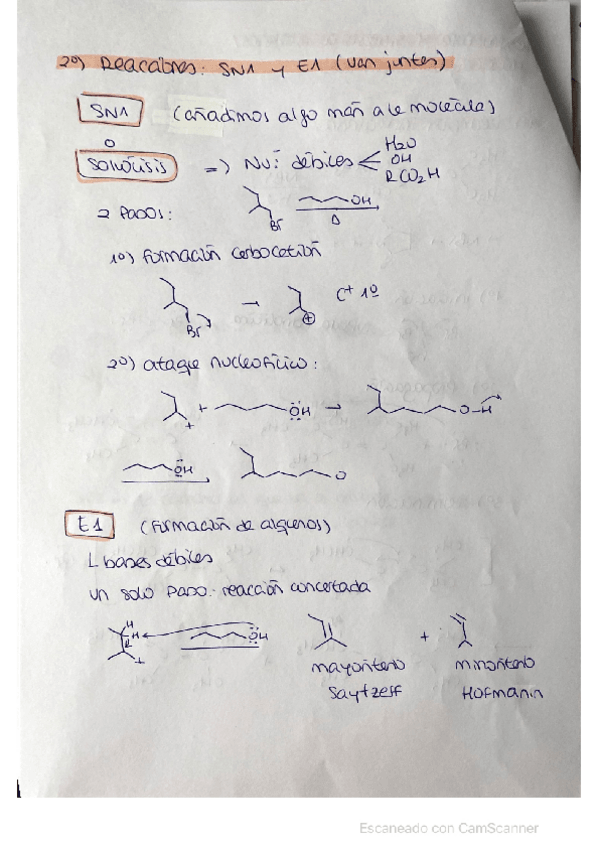 2º) Reacciones: SN1 y E1 (van juntas)
SN1 (añadimos algo mañ a le molécula)
o
Solvólisis => Nu: débiles < H2O
OH
RCO2H
2 pasos: Br OH
Δ
1º) formación carbocatión
Br → + C+ 1º
2º) ataque nucleofílico:
+ + ÖH → O-H
ÖH O
E1 (formación de alquenos)
L bases débiles
un solo paso: reacción concertada
H
H ÖH +
+
mayoritario minoritario
Saytzeff Hofmann
Escaneado con CamScanner